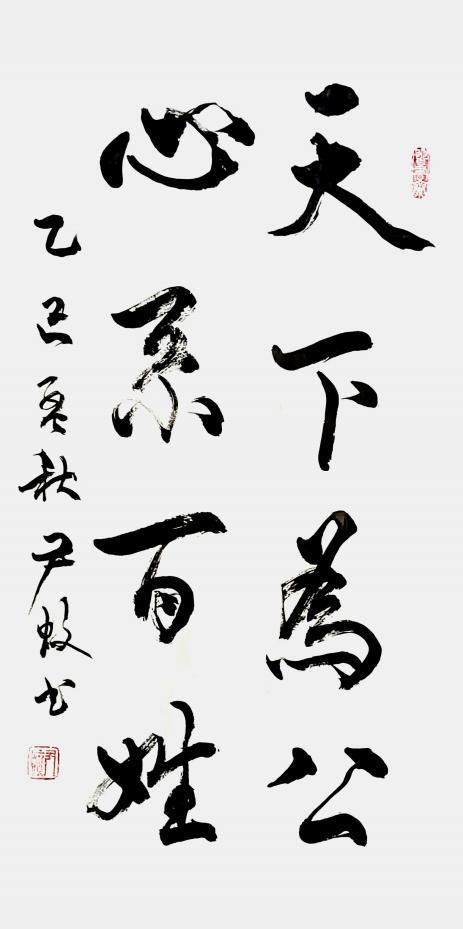 天下為公
心系百姓
乙巳孟秋尹书